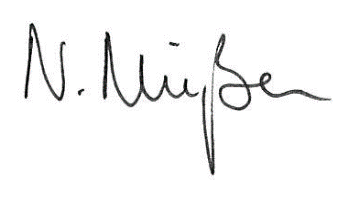 N. Nüßen